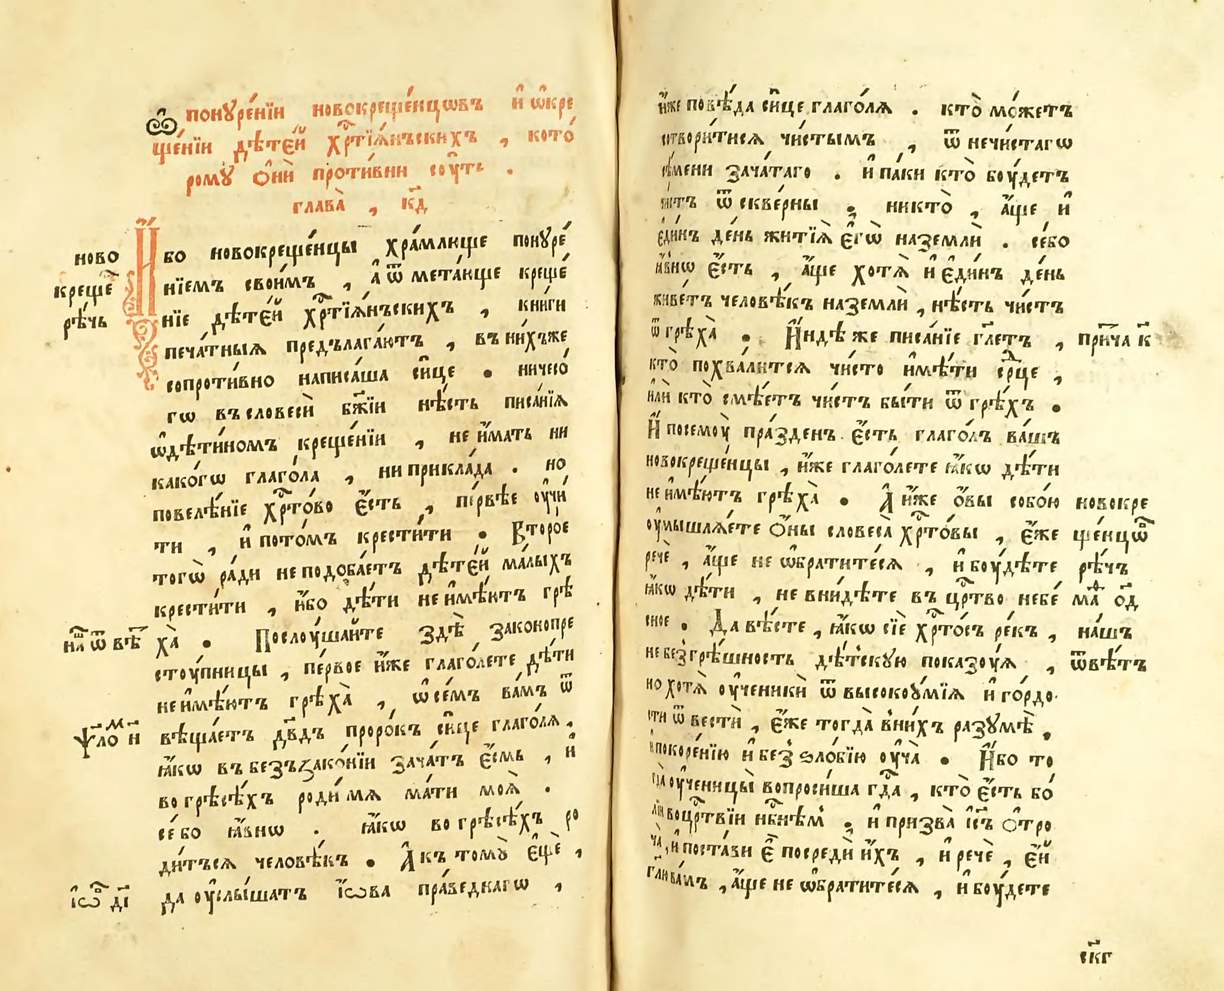 Ѡ понꙋре́нїи новокреще́нцѡвъ и҆ ѡ҆кре
ще́нїи дѣте́й хрⷭ҇тїѧ́нъскихъ , кото́
ромꙋ ѻ҆нѝ проти́вни сꙋ́ть .
глава̀ , к҃д
И҆́бо новокреще́нцы хра́млюще понꙋре́
нїемъ свои́мъ , а҆ ѿмета́юще креще́
нїе дѣте́й хрⷭ҇тїѧ́нъскихъ , кни́ги
печа́тныѧ предълага́ютъ , въ ни́хъже
сопроти́вно написа́ша си́це . ничесо́
гѡ въ словесѝ бж҃їи нѣ́сть писа́нїѧ
ѡ҆дѣти́номъ креще́нїи , не и҆́мать ни
како́гѡ глаго́ла , ни прикла́да . но
повелѣ́нїе хрⷭ҇то́во є҆́сть , пе́рвѣе оу҆чи́
ти , и҆ пото́мъ крести́ти . Второ́е
тогѡ̀ ра́ди не подоба́етъ дѣте́й ма́лыхъ
крести́ти , и҆́бо дѣ́ти не и҆мѣ́ютъ грѣ
ха̀ . Послꙋ́шайте здѣ̀ законопре
стꙋ́пницы , пе́рвое и҆́же глаго́лете дѣ́ти
не и҆мѣ́ютъ грѣха̀ , ѡ҆ се́мъ ва́мъ ѿ
вѣща́етъ дв҃дъ проро́къ си́це глаго́лѧ ,
ꙗ҆́кѡ въ безъзако́нїи зача́тъ є҆́смь , и҆
во грѣсѣ́хъ роди́ мѧ ма́ти моѧ̀ .
се́ бо ꙗ҆́внѡ . ꙗ҆́кѡ во грѣсѣ́хъ ро
ди́тъсѧ человѣ́къ . А҆ къ томꙋ̀ є҆щѐ ,
да оу҆слы́шатъ і҆́ѡва пра́веднагѡ ,
ново
креще́
рѣ́чь
на́шъ ѿвѣ́
ѱало́ н
і҆́ѡв д҃і
и҆́же повѣ́да си́це глаго́лѧ . кто̀ мо́жетъ
сотвори́тисѧ чи́стымъ , ѿ нечи́стагѡ
сѣ́мени зача́таго . и҆ па́ки кто̀ бꙋ́детъ
чи́стъ ѿ скве́рны . никто̀ , а҆́ще и҆
є҆ди́нъ де́нь житїѧ̀ є҆гѡ̀ на землѝ . се́ бо
ꙗ҆́внѡ є҆́сть , а҆́ще хотѧ̀ и҆ є҆ди́нъ де́нь
живе́тъ человѣ́къ на землѝ , нѣ́сть чи́стъ
ѿ грѣха̀ . И҆́ндѣ же писа́нїе гл҃етъ ,
кто̀ похва́литсѧ чи́сто и҆мѣ́ти срⷣце ,
и҆лѝ кто̀ смѣ́етъ чи́стъ бы́ти ѿ грѣ́хъ .
И҆ по семꙋ̀ пра́зденъ є҆́сть глаго́лъ ва́шъ
новокреще́нцы , и҆́же глаго́лете ꙗ҆́кѡ дѣ́ти
не и҆мѣ́ютъ грѣха̀ . А҆ и҆́же ѻ҆́вы собо́ю
оу҆мышлѧ́ете ѻ҆́ны словеса̀ хрⷭ҇то́вы , є҆́же
речѐ , а҆́ще не ѡ҆братите́сѧ , и҆ бꙋ́дѣте
ꙗ҆́кѡ дѣ́ти , не вни́дѣте въ црⷭ҇тво небе́
сное . Да вѣ́сте , ꙗ҆́кѡ сїѐ хрⷭ҇то́съ ре́къ ,
не безгрѣ́шность дѣ́тскꙋю пока́зꙋѧ ,
но хотѧ̀ оу҆ченикѝ ѿ высокоꙋ́мїѧ и҆ го́рдо
сти ѿвестѝ , є҆́же тогда̀ в ни́хъ разꙋмѣ̀ ,
и҆ покоре́нїю и҆ безѕло́бїю оу҆ча̀ . И҆́бо то
гда̀ оу҆ченицы̀ вопроси́ша гдⷭ҇а , кто̀ є҆́сть бо́
лїи во црⷭ҇твїи нбⷭ҇нѣмъ . и҆ призва̀ і҆и҃съ ѻ҆тро
ча̀ , и҆ поста́ви є҆̀ посредѝ и҆́хъ , и҆ речѐ , є҆́й
гл҃ю ва́мъ , а҆́ще не ѡ҆братите́сѧ , и҆ бꙋ́дете
при́ча к҃
новокре
ще́нцѡв
рѣ́чь
маⷴ҇ ѻ҆д
на́шъ
ѿвѣ́тъ
ск҃г